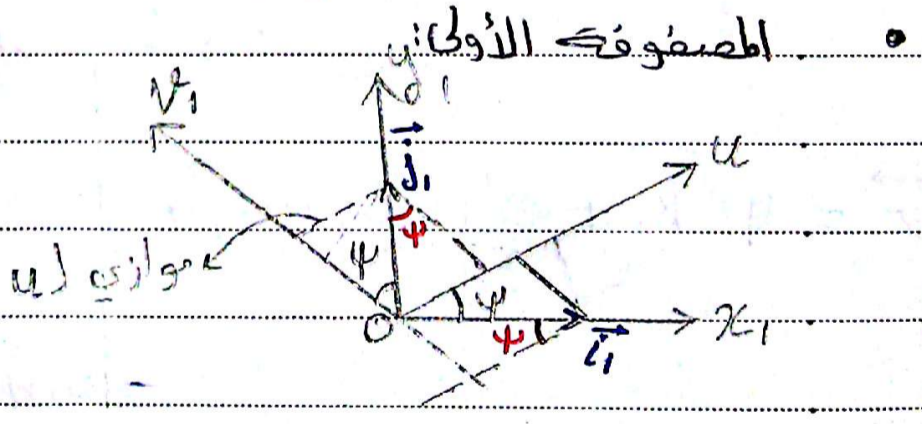 • المصفوفة الأولى:
y₁
v₁
u
j₁
ψ
ψ
موازي لـ u
ψ
O
ψ
x₁
i₁